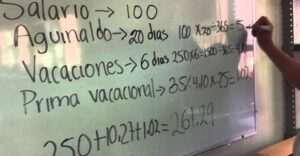 Salario → 100
Aguinaldo → 20 dias 100 x 20 = 365 = 5
Vacaciones → 6 dias 250 x 6
Prima vacacional → 35
250+10.27+1.02=261.29